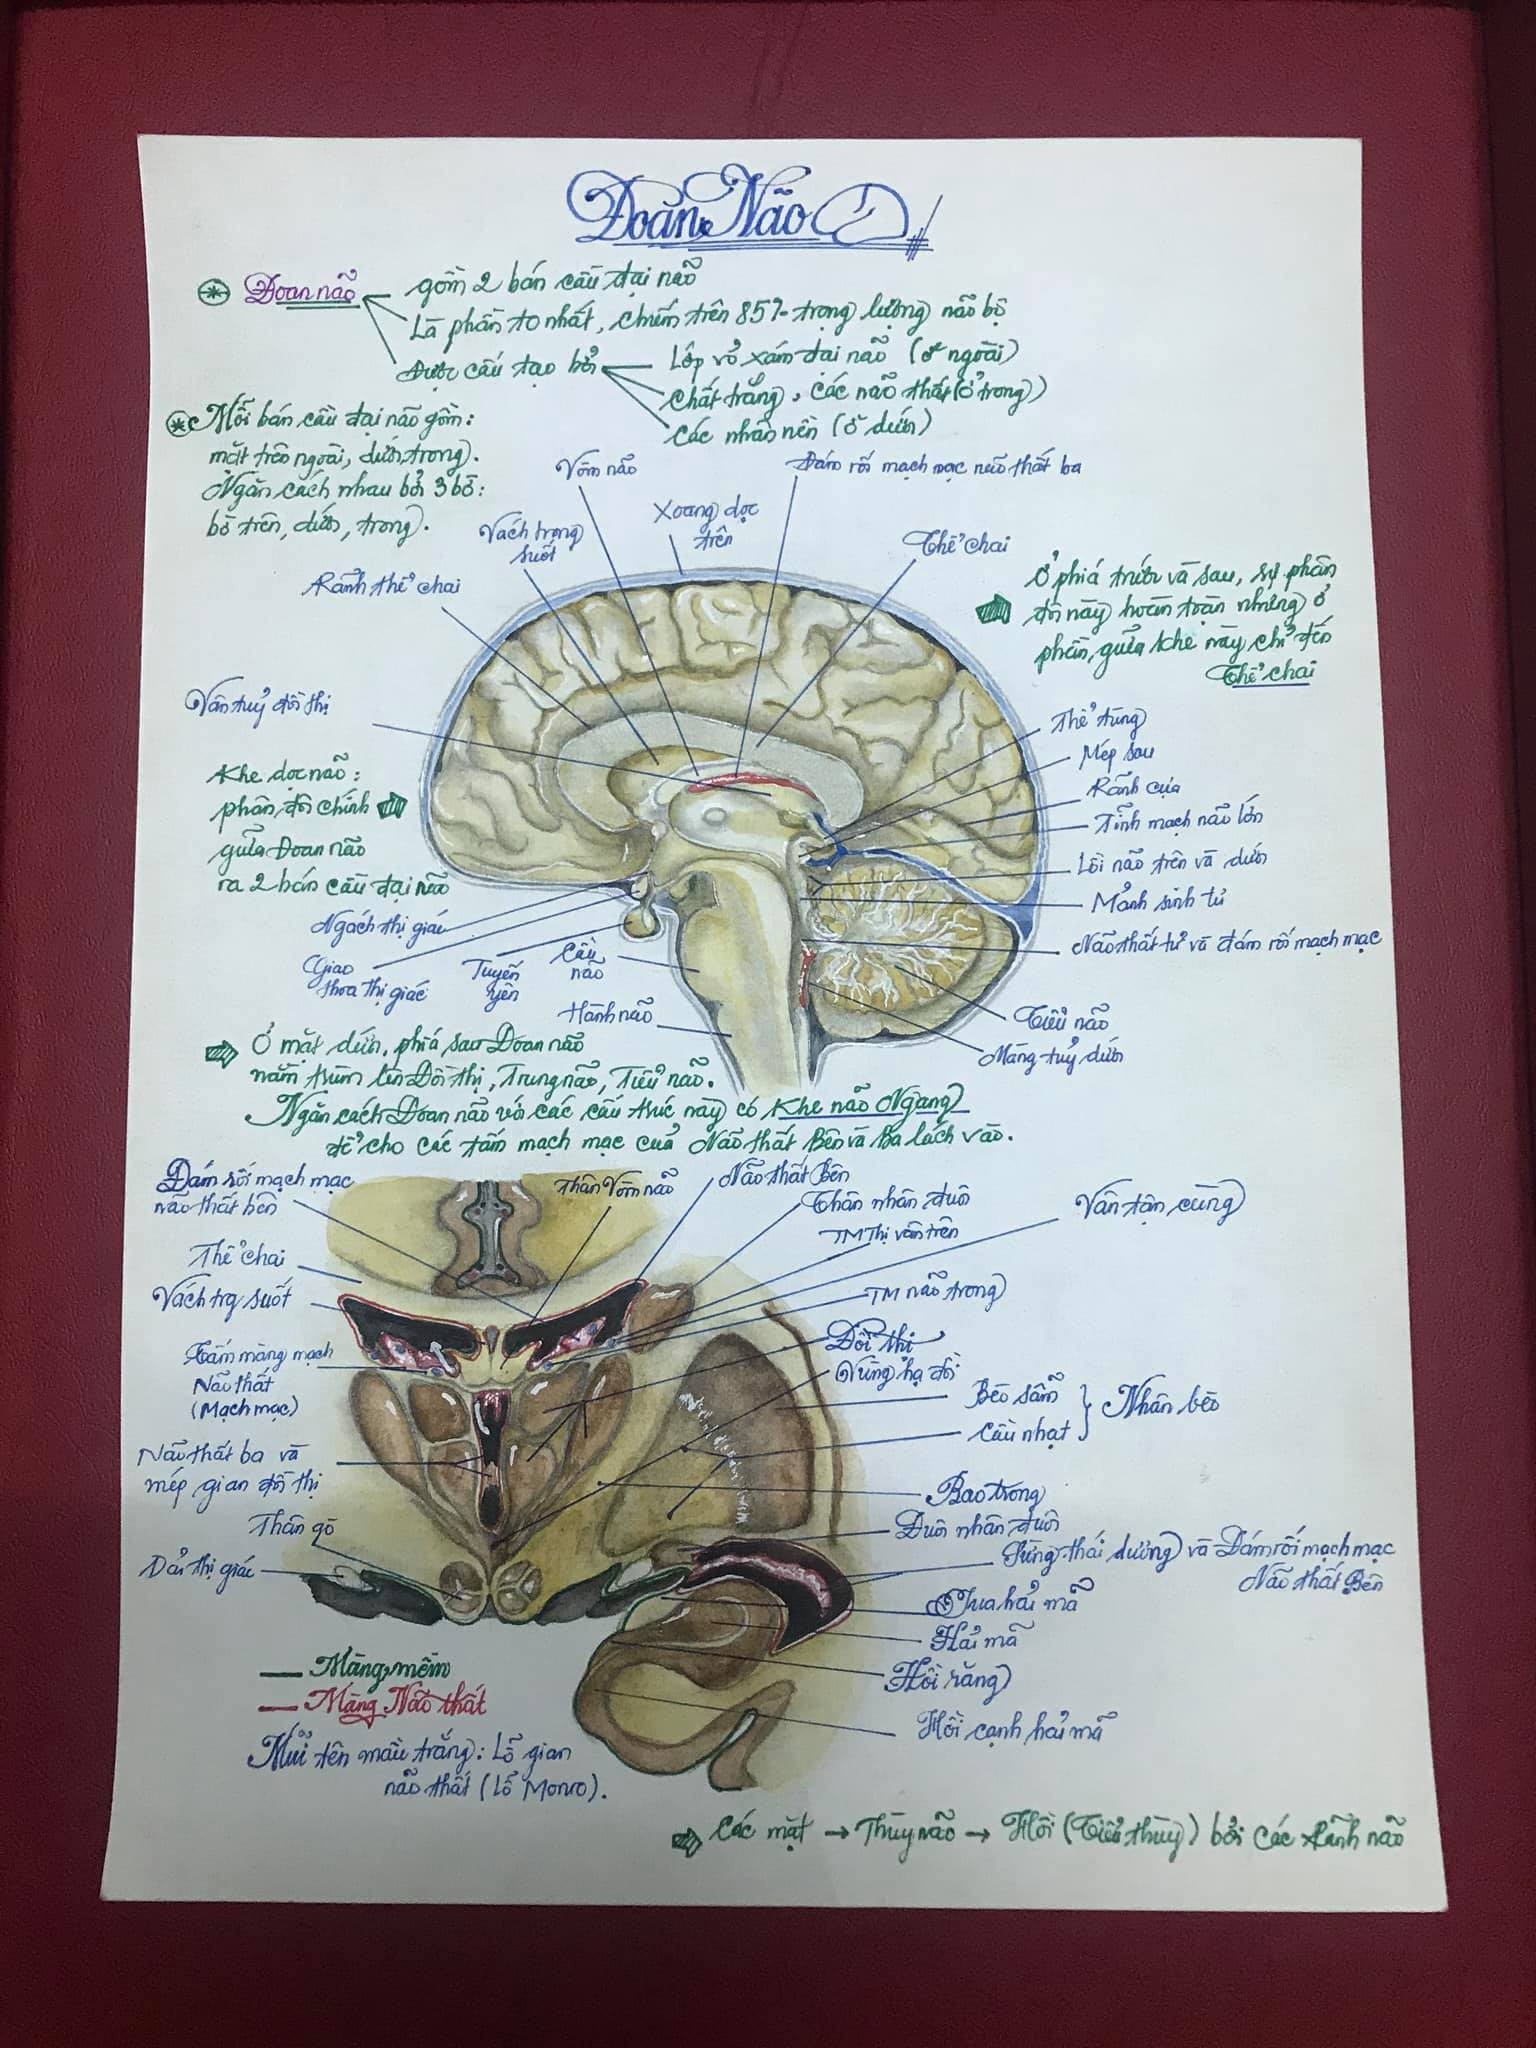 Đoan Não
Đoan não
gồm 2 bán cầu đại não
Là phần to nhất, chiếm trên 85% trọng lượng não bộ
Được cấu tạo bởi
Lớp vỏ xám đại não (ở ngoài)
Chất trắng, các não thất (ở trong)
Các nhân nền (ở dưới)
Mỗi bán cầu đại não gồm:
mặt trên ngoài, dưới, trong.
Ngăn cách nhau bởi 3 bờ:
bờ trên, dưới, trong.
Vòm não
Đám rối mạch mạc não thất ba
Xoang dọc
trên
Vách trong
suốt
Thể chai
Rãnh thể chai
Ở phía trước và sau, sự phân
đôi này hoàn toàn nhưng ở
phần giữa khe này chỉ đến
Thể chai
Vân tuỷ đồi thị
Khe dọc não:
phân đôi chính
giữa Đoan não
ra 2 bán cầu đại não
Thể tùng
Mép sau
Rãnh cựa
Tĩnh mạch não lớn
Lồi não trên và dưới
Mảnh sinh tư
Não thất tư và đám rối mạch mạc
Tiểu não
Màng tuỷ dưới
Ngách thị giác
Giao
thoa thị giác
Tuyến
yên
Cầu
não
Hành não
Ở mặt dưới, phía sau Đoan não
nằm trùm lên Đồi thị, Trung não, Tiểu não.
Ngăn cách Đoan não với các cấu trúc này có Khe não Ngang
để cho các tấm mạch mạc của Não thất Bên và Ba lách vào.
Đám rối mạch mạc
não thất bên
Thân Vòm não
Não thất Bên
Thân nhân đuôi
TM Thị vân trên
Vân tận cùng
Thể chai
Vách trg suốt
TM não trong
Tấm màng mạch
Não thất
(Mạch mạc)
Đồi thị
Vùng hạ đồi
Bèo sẫm
Cầu nhạt
Nhân bèo
Não thất ba và
mép gian đồi thị
Bao trong
Thân gò
Đuôi nhân đuôi
Sừng thái dương và Đám rối mạch mạc
Não thất Bên
Dải thị giác
Tua hải mã
Hải mã
Hồi răng
Hồi cạnh hải mã
Màng mềm
Màng Não thất
Mũi tên màu trắng: Lỗ gian
não thất (Lỗ Monro).
Các mặt → Thùy não → Hồi (Tiểu thùy) bởi các Rãnh não